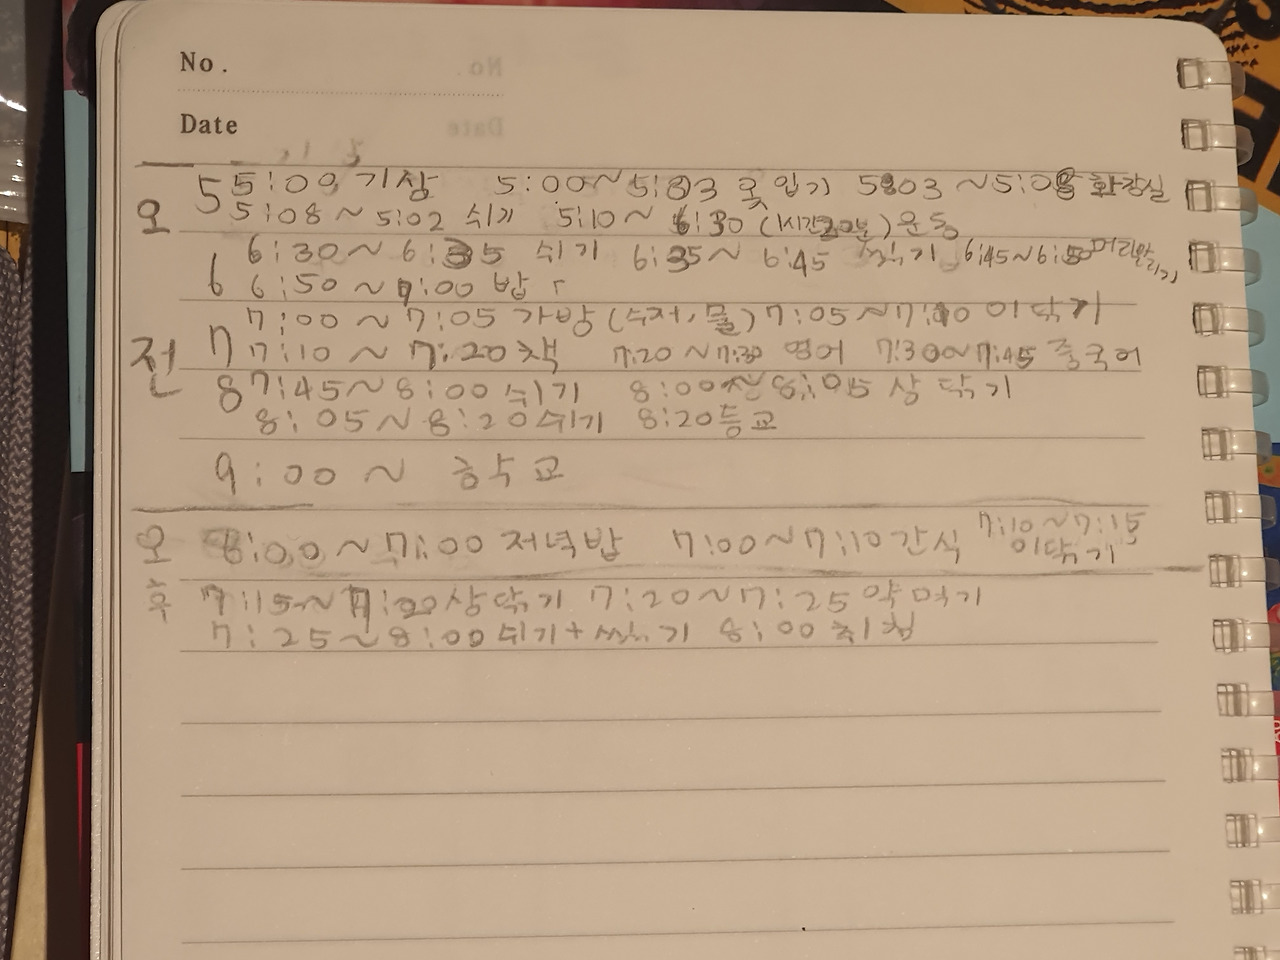 No.
Date
5 5:00 기상 5:00~5:03 옷 입기 5:03 ~5:08 화장실
오 5:08 ~ 5:02 쉬기 5:10 ~ 6:30 (1시간20분) 운동
6:30 ~ 6:35 쉬기 6:35 ~ 6:45 씻기 6:45~6:50 머리말리기
6 6:50 ~ 7:00 밥
7:00 ~ 7:05 가방 (수저, 물) 7:05 ~7:10 이닦기
전 7 7:10 ~ 7:20 책 7:20 ~7:30 영어 7:30~7:45 중국어
8 7:45~8:00 쉬기 8:00~8:05 상 닦기
8:05~8:20 쉬기 8:20 등교
9:00 ~ 학교
오 6:00 ~ 7:00 저녁밥 7:00~7:10 간식 7:10~7:15 이닦기
후 7:15~7:20 상닦기 7:20~7:25 약먹기
7:25~8:00 쉬기+씻기 8:00 취침